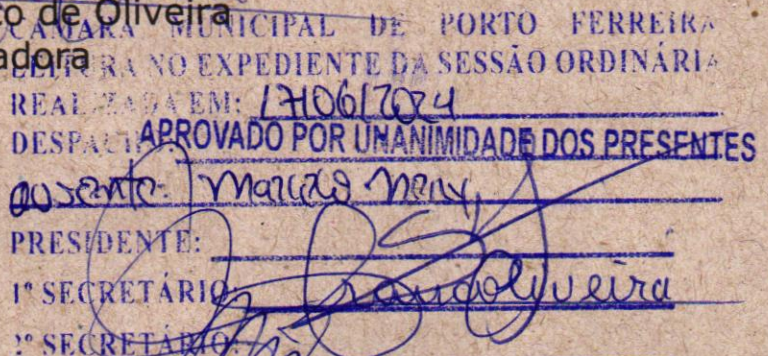 to de Oliveira
CÂMARA MUNICIPAL DE PORTO FERREIRA
adora
LEITURA NO EXPEDIENTE DA SESSÃO ORDINÁRIA
REALIZADA EM: 17/06/2024
DESPACHO APROVADO POR UNANIMIDADE DOS PRESENTES
ausente:
PRESIDENTE:
1º SECRETÁRIO: Oliveira
2º SECRETÁRIO: